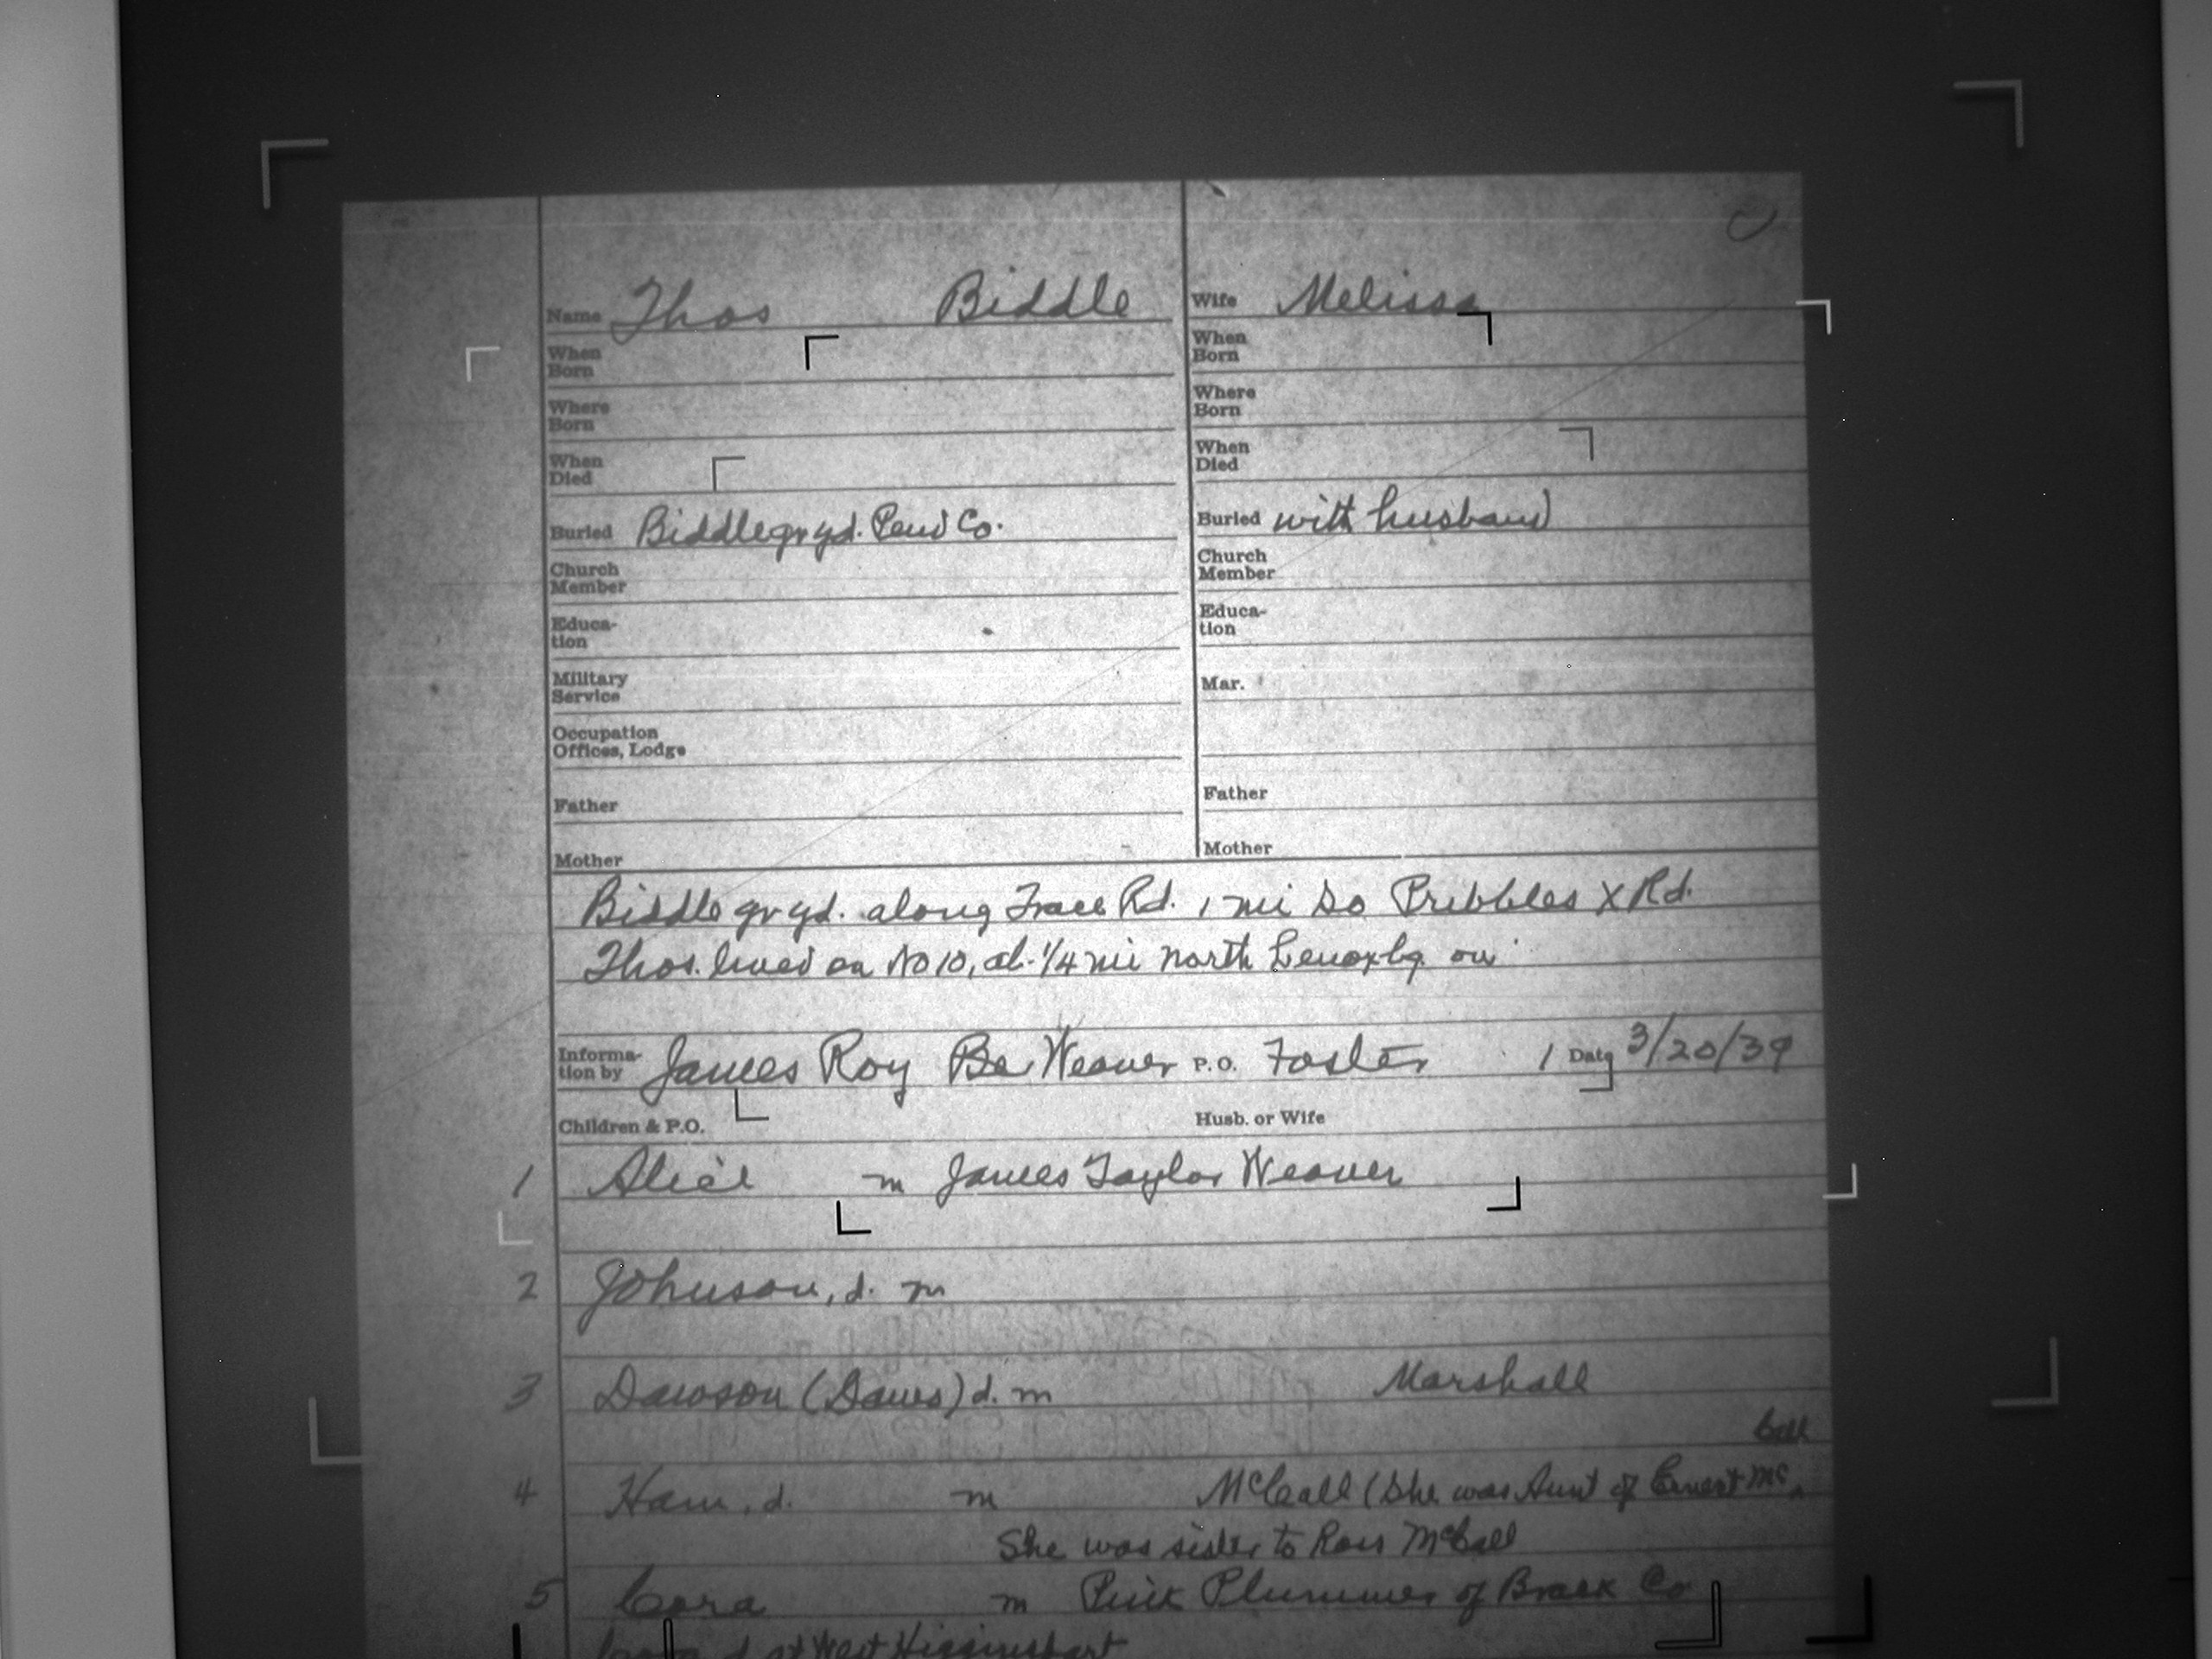 Name Thos Biddle Wife Melissa
When Born When Born
Where Born Where Born
When Died When Died
Buried Biddle gryd. Pend Co. Buried with husband
Church Member Church Member
Educa- tion Educa- tion
Military Service Mar.
Occupation Offices, Lodge
Father Father
Mother Mother
Biddle gryd. along Trace Rd. 1 mi So Pribbles X Rd.
Thos. lived on No 10, ab. 1/4 mi north Lenoxbg on
Informa- tion by James Roy Be Weaver P.O. Foster 1 Date 3/20/39
Children & P.O. Husb. or Wife
1 Alice m James Taylor Weaver
2 Johnson, d. m
3 Dawson (Daws) d. m Marshall
4 Ham, d. m McCall (She was Aunt of Ernest Mc Call
She was sister to Ross McCall
5 Cora m Pink Plummer of Brack Co
Cora d at West